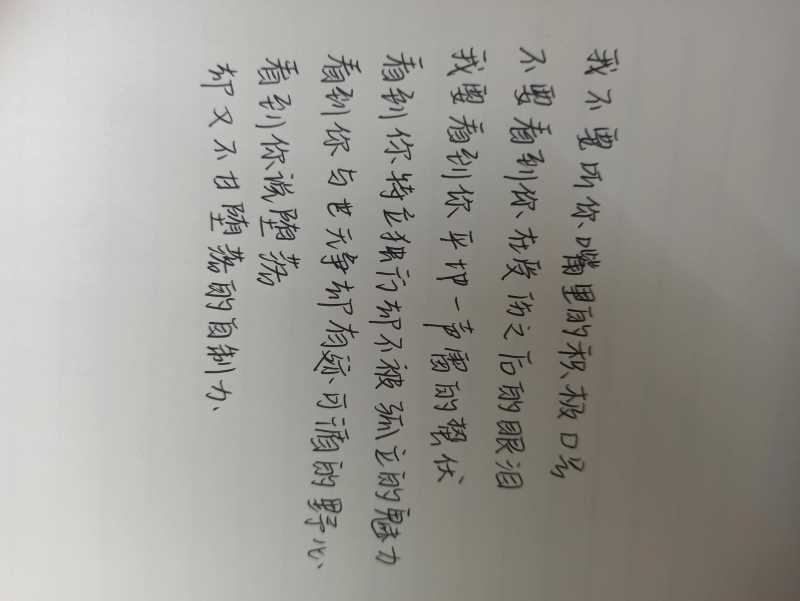 我不要听你嘴里的积极口号
不要看到你在受伤之后的眼泪
我要看到你平地一声雷的蛰伏
看到你特立独行却不被孤立的魅力
看到你与世无争却有迹可循的野心
看到你说堕落
却又不甘堕落的自制力